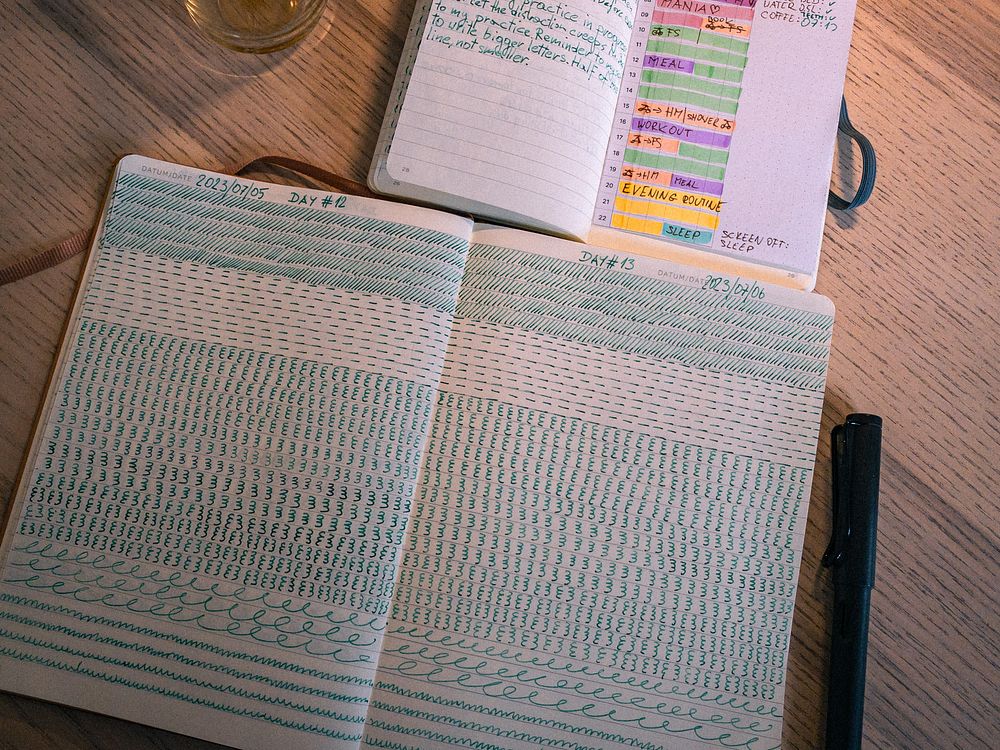 practice in
let the distraction creeps
to my practice. Reminder to
to write bigger letters. Half of the
line, not smaller.
28
26
MANIA♡
COFFE: 07:15
09
10
11
12
13
14
15
16
17
18
19
20
21
22
BOOK
FS
→FS
MEAL
→HM/SHOWER
WORKOUT
→FS
→HM MEAL
EVENING ROUTINE
SLEEP
SCREEN OFF:
SLEEP
DATUM/DATE 2023/07/05 DAY #12
DAY #13 DATUM/DATE 2023/07/06